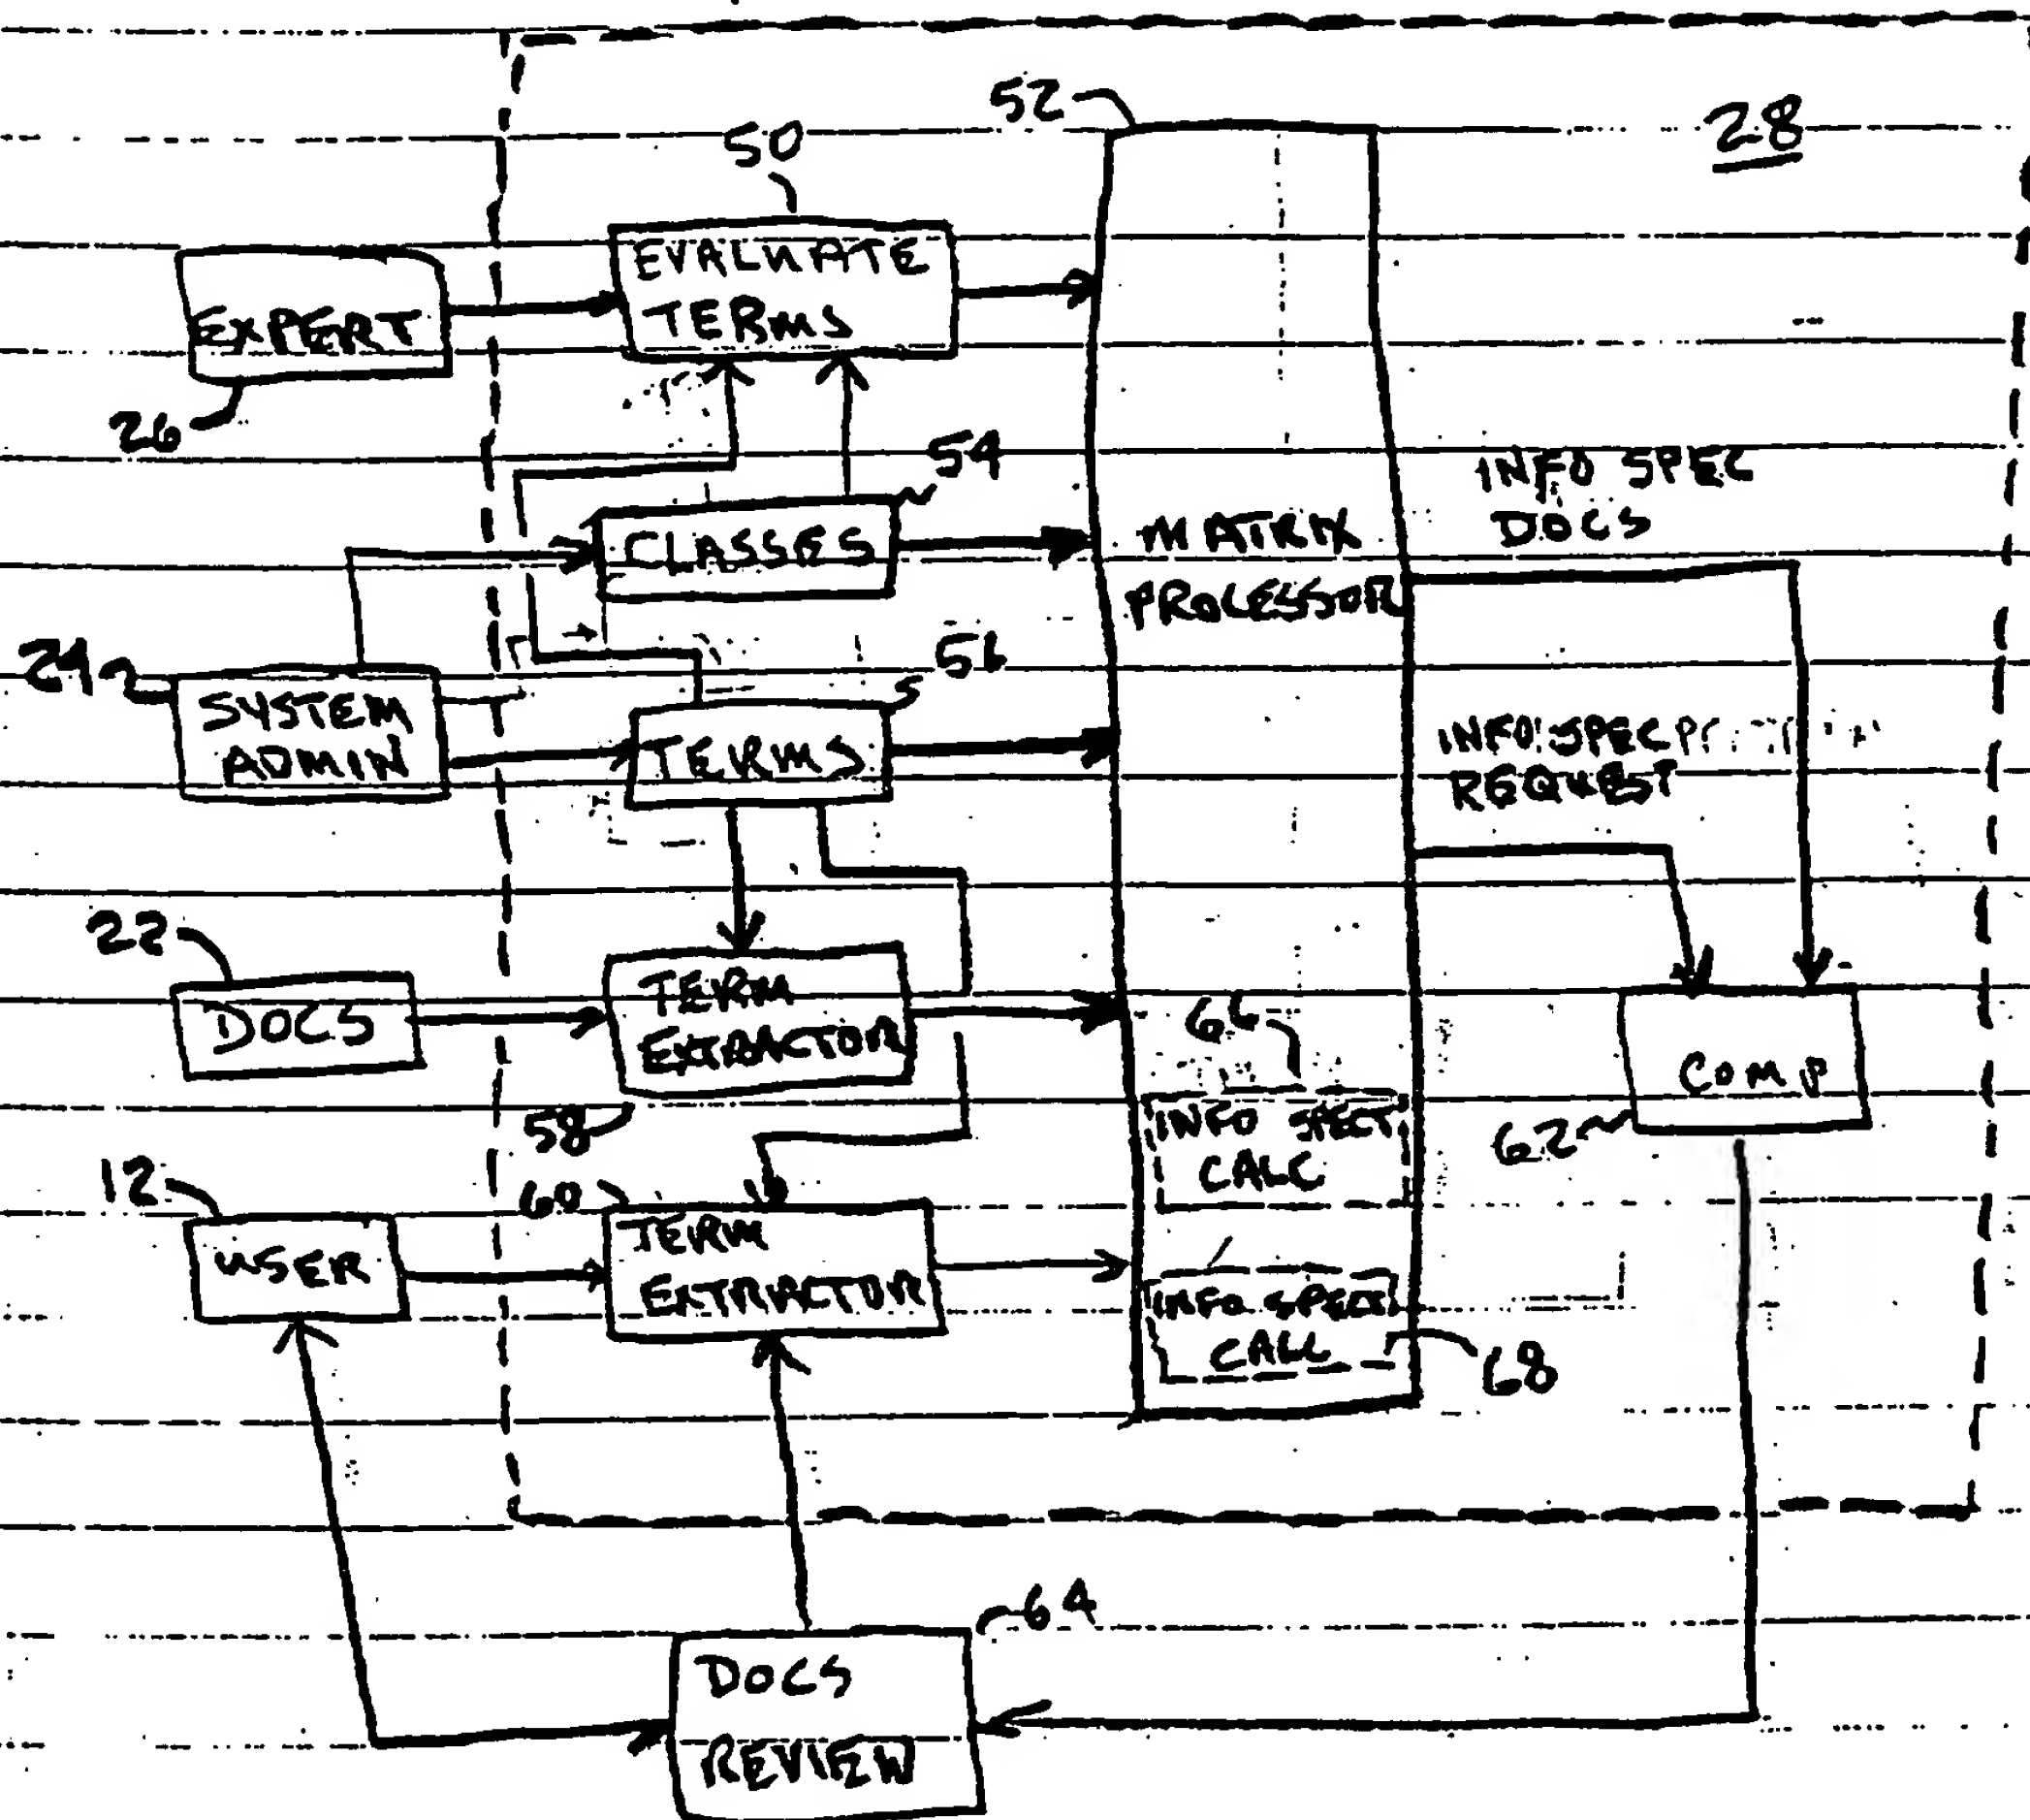 52
28
50
EVALUATE
TERMS
EXPERT
26
54
INFO SPEC
DOCS
CLASSES
MATRIX
PROCESSOR
24
56
SYSTEM
ADMIN
TERMS
INFO SPEC
REQUEST
22
DOCS
TERM
EXTRACTOR
66
COMP
58
INFO SPECT
CALC
62
12
60
USER
TERM
EXTRACTOR
INFO SPECT
CALC
68
64
DOCS
REVIEW